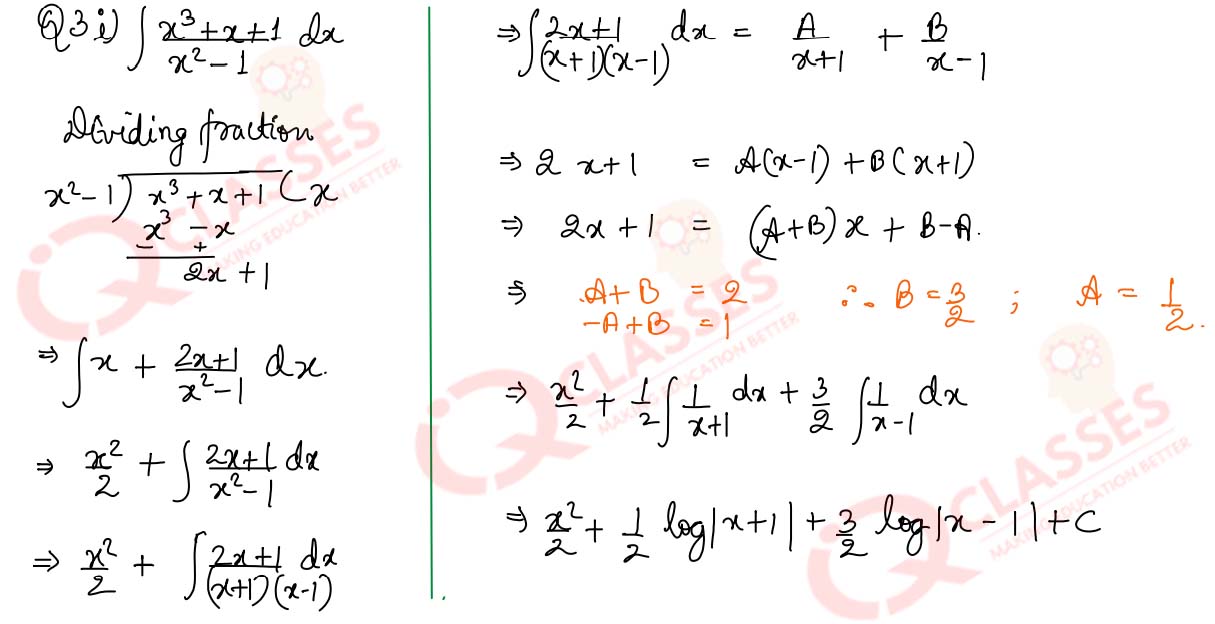 Q3 i) ∫ (x³+x+1)/(x²−1) dx
Dividing fraction
x²−1) x³+x+1 (x
x³ −x
− +
2x+1
⇒ ∫ x + (2x+1)/(x²−1) dx.
⇒ x²/2 + ∫ (2x+1)/(x²−1) dx
⇒ x²/2 + ∫ (2x+1)/((x+1)(x-1)) dx
⇒ ∫ (2x+1)/((x+1)(x-1)) dx = A/(x+1) + B/(x-1)
⇒ 2 x+1 = A(x-1) + B(x+1)
⇒ 2x+1 = (A+B)x + B-A.
⇒ A+B = 2 ∴ B = 3/2 ; A = 1/2.
-A+B = 1
⇒ x²/2 + 1/2 ∫ 1/(x+1) dx + 3/2 ∫ 1/(x-1) dx
⇒ x²/2 + 1/2 log|x+1| + 3/2 log|x-1| + C
iQ CLASSES
MAKING EDUCATION BETTER
iQ CLASSES
MAKING EDUCATION BETTER
iQ CLASSES
MAKING EDUCATION BETTER